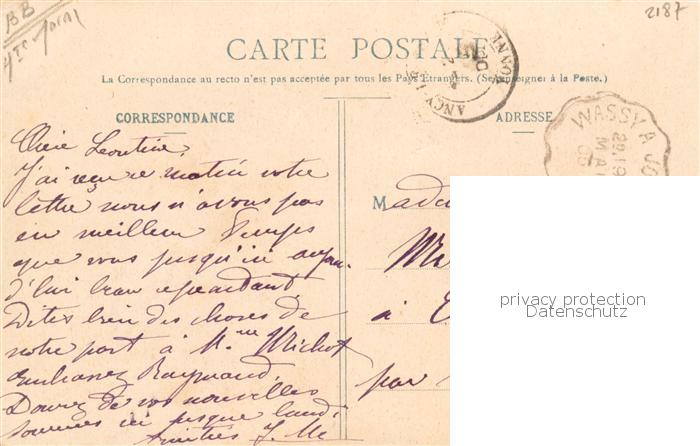 BB
2187
CARTE POSTALE
La Correspondance au recto n'est pas acceptée par tous les Pays Etrangers. (Se renseigner à la Poste.)
CORRESPONDANCE
Chère Léontine,
J'ai reçu ce matin votre
lettre nous n'avons pas
eu meilleur temps
que vous jusqu'ici aujour-
d'hui beau cependant,
Dites bien des choses de
notre part à Mme Michot
embrassez Raymond,
Donnez de vos nouvelles
sommes ici jusque lundi
Amitiés J. M
ADRESSE
WASSY A JO
MAI
YONNE
Mada
à
par
privacy protection
Datenschutz